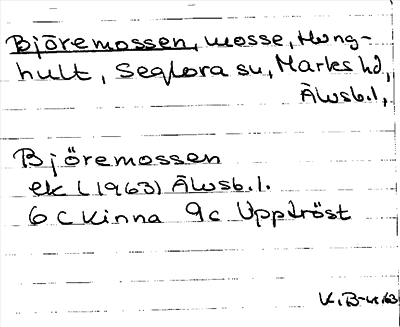 Björemossen, mosse, Hung-
hult, Seglora sn, Marks hd,
Älvsb.l,
Björemossen
ek (1963) Älvsb.l.
6 c Kinna 9c Upptröst